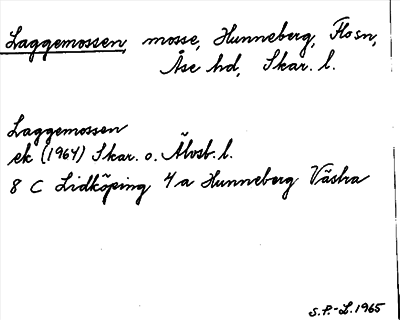 Laggemossen, mosse, Hunneberg, Flo sn,
Åse hd, Skar. l.
Laggemossen
ek (1964) Skar. o. Älvsb. l.
8 C Lidköping 4a Hunneberg Västra
S.P.-L. 1965